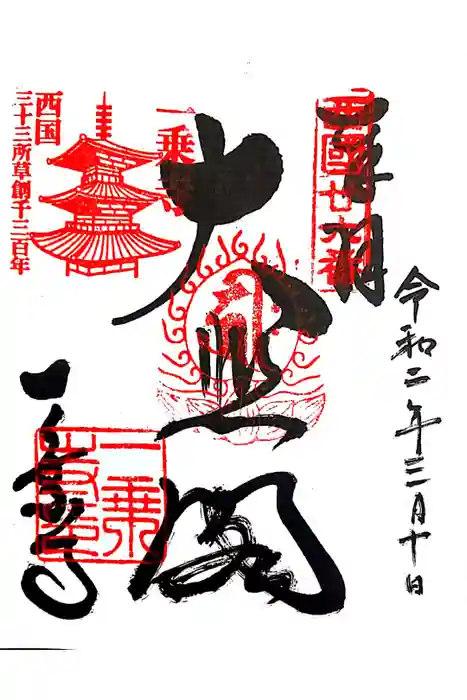 奉拝
西國廿六番
令和二年三月十日
大悲閣
一乗寺
西国
三十三所草創千三百年
一乗寺
一乗
寺印